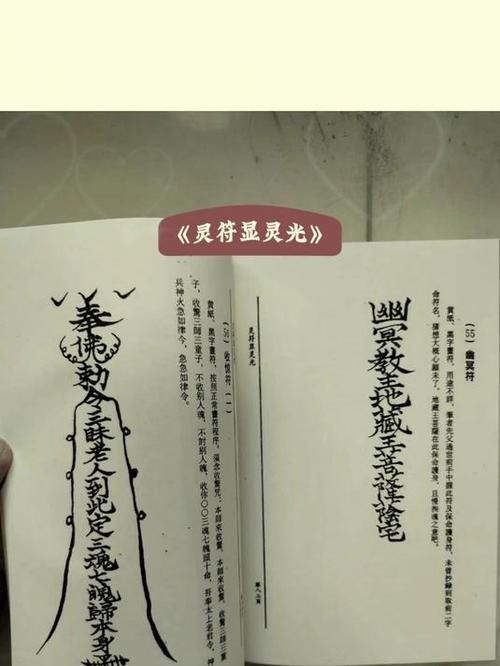 《灵符显灵光》
(55) 幽冥符
黄紙、黑字書符，用途不詳，筆者先父過世前手中握此符及保命護身符，未曾抄錄到取前二字
命符名，猜想大概心願未了。地藏王菩薩在此保命護身，且慢拘魂之意吧。
幽冥教主地藏王菩降陰宅
灵符显灵光
第八二頁
(56) 收惊符 (一)
黄紙、黑字書符，按照正常書符程序，須念收驚咒：本師來收驚，本師來收驚，收驚三師三童
子，收驚三師三童子，不收別人魂，不討別人魂，收你〇〇三魂七魄頭十命，符奉太上老君令，神
兵神火急如律令，急急如律令。
奉佛勅令三昧老人到此定三魂七魄歸本身